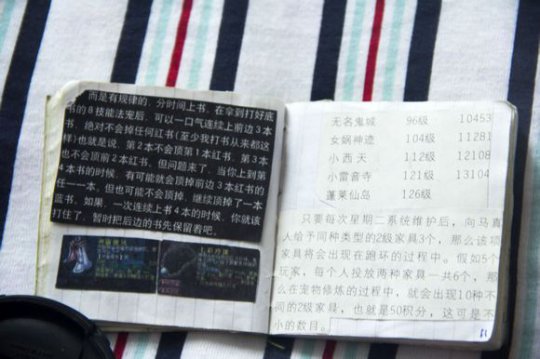 而是有规律的，分时间上书。在拿到打好底
书的8技能法宠后，可以一口气连续上前边3本
书，绝对不会掉任何红书(至少我打书从来都这
样)也就是说，第2本不会顶第1本红书，第3本
也不会顶前2本红书。但问题来了，当你上到第
4本书的时候，有可能就会顶掉前边3本红书的
任一一本，但也可能不会顶掉，继续顶掉了一本
蓝书。如果，一次连续上书4本的时候，你就该
打住了，暂时把后边的书先保留着吧。
无名鬼城 96级 10453
女娲神迹 104级 11281
小西天 112级 12108
小雷音寺 121级 13104
蓬莱仙岛 126级
只要每次星期二系统维护后，向马真
人给予同种类型的2级家具3个，那么该项
家具将会出现在跑环的过程中。假如5个
玩家，每个人投放两种家具一共6个，那
么在宠物修炼的过程中，就会出现10种不
同的2级家具，也就是50积分，这可是不
小的数目。